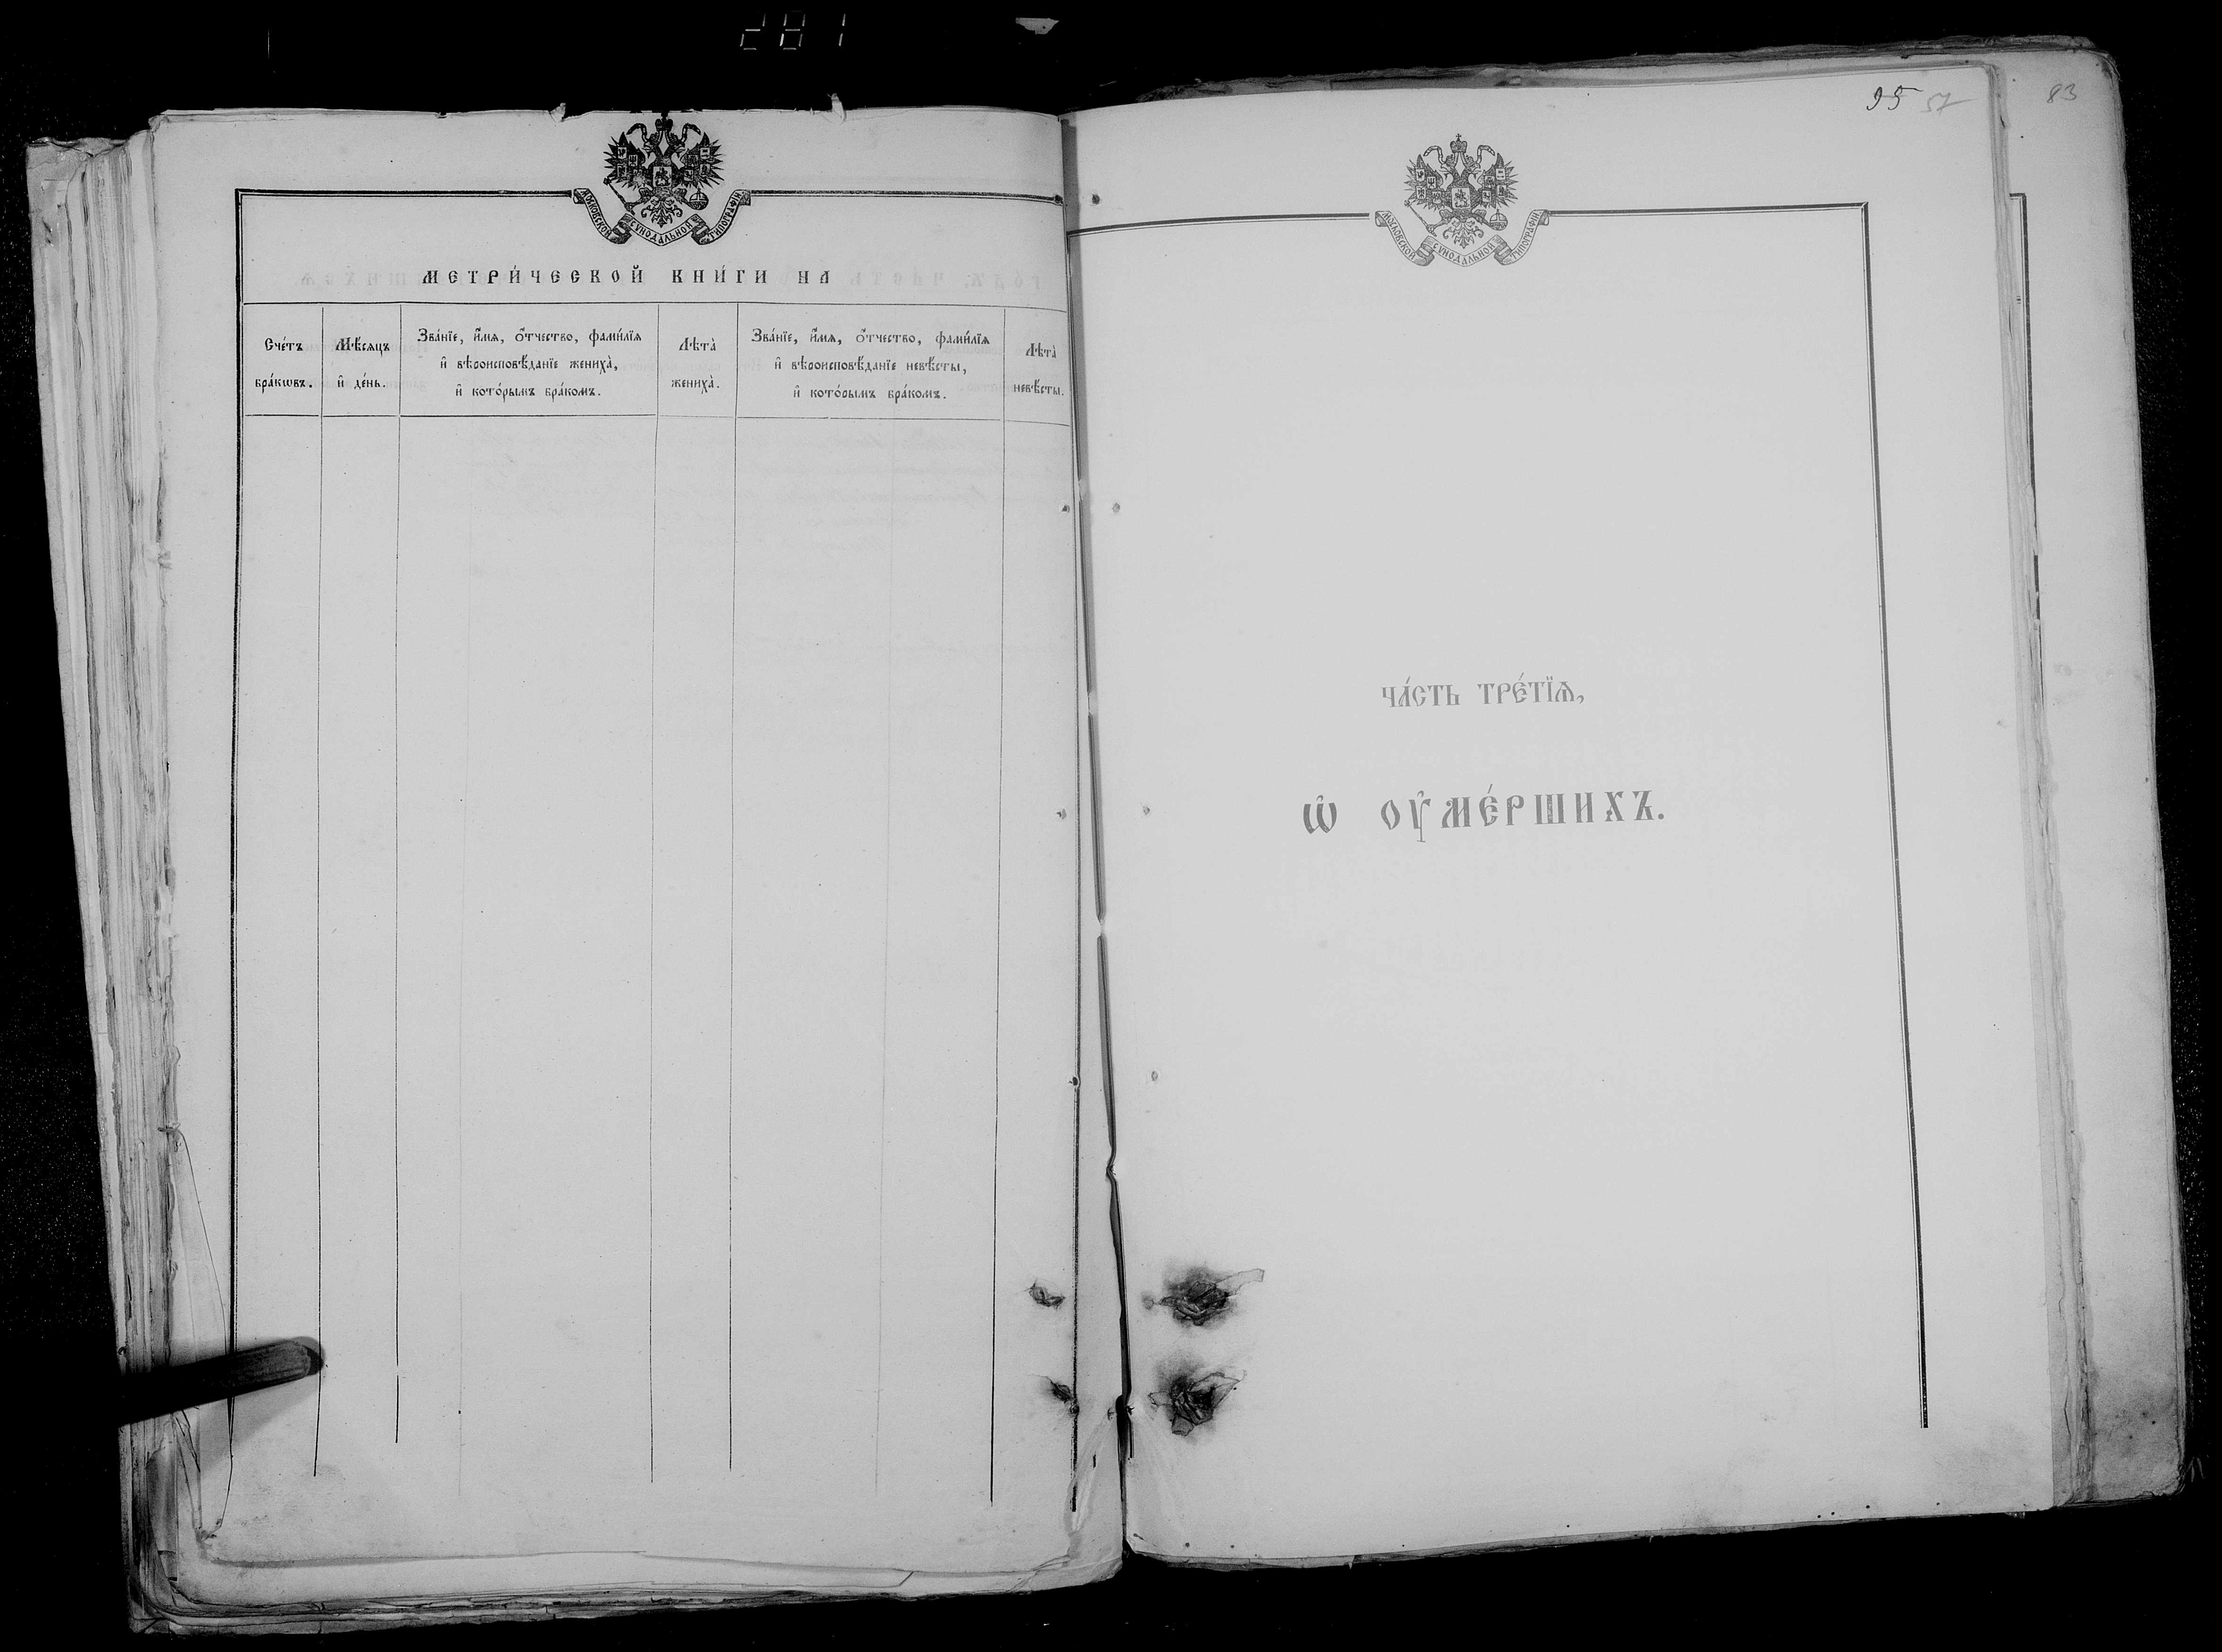 281
МОСКОВСКОЙ СѴНОДАЛЬНОЙ ТИПОГРАФІИ
МЕТРИ́ЧЕСКОЙ КНИ́ГИ НА
Сче́тъ бра́кѡвъ.
Мѣ́сяцъ и҆ де́нь.
Зва́нїе, и҆́мѧ, ѻ҆́тчество, фами́лїѧ
и҆ вѣроисповѣ́данїе жениха̀,
и҆ кото́рымъ бра́комъ.
Лѣта̀ жениха̀.
Зва́нїе, и҆́мѧ, ѻ҆́тчество, фами́лїѧ
и҆ вѣроисповѣ́данїе невѣ́сты,
и҆ кото́рымъ бра́комъ.
Лѣта̀ невѣ́сты.
95 57
83
МОСКОВСКОЙ СѴНОДАЛЬНОЙ ТИПОГРАФІИ
ЧА́СТЬ ТРЕ́ТЇѦ,
Ѡ҆ ОУ҆МЕ́РШИХЪ.